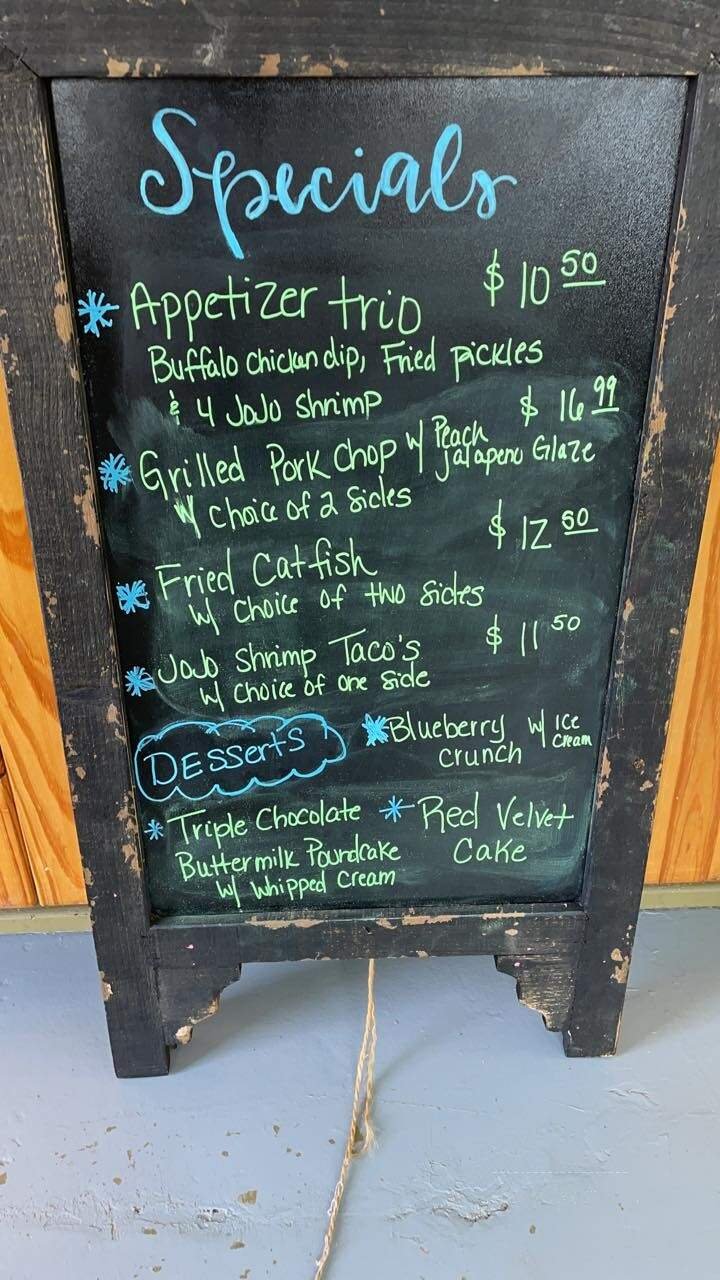 Specials
* Appetizer trio $ 10 50
Buffalo chicken dip, Fried pickles
& 4 JoJo Shrimp
$ 16 99
* Grilled Pork Chop w/ Peach Jalapeno Glaze
w/ choice of 2 Sides
$ 12 50
* Fried Catfish
w/ choice of two sides
* JoJo Shrimp Taco's $ 11 50
w/ choice of one side
Desserts
* Blueberry crunch w/ Ice Cream
* Triple Chocolate
Buttermilk Poundcake
w/ whipped cream
* Red Velvet
Cake